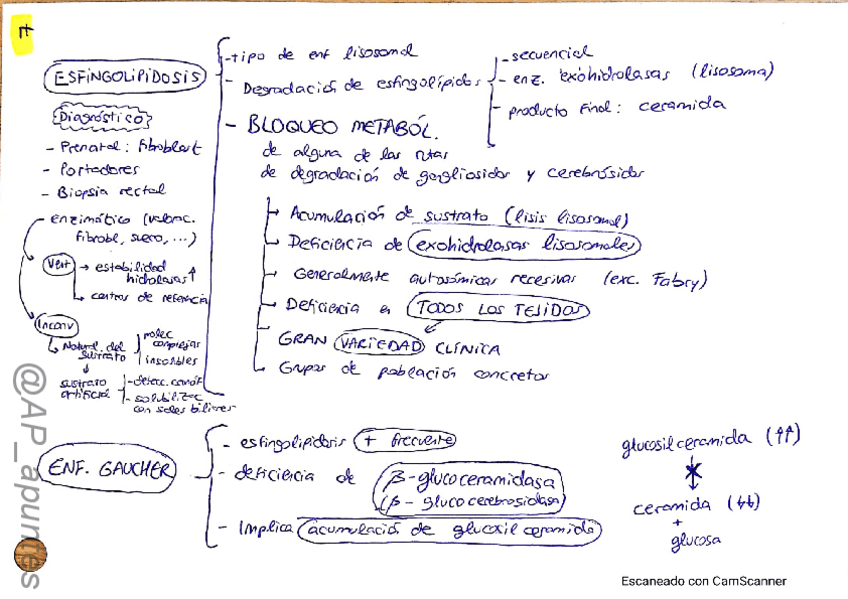 7
ESFINGOLIPIDOSIS
- tipo de enf lisosomal
- Degradación de esfingolípidos
- secuencial
- enz. exohidrolasas (lisosoma)
- producto Final: ceramida
- BLOQUEO METABÓL.
de alguna de las rutas
de degradación de gangliosidos y cerebrósidos
Acumulación de sustrato (lisis lisosomal)
Deficiencia de exohidrolasas lisosomales
Generalmente autosómicas recesivas (exc. Fabry)
Deficiencia en TODOS LOS TEJIDOS
GRAN VARIEDAD CLÍNICA
Grupos de población concretos
Diagnóstico
- Prenatal: Fibroblast
- Portadores
- Biopsia rectal
- enzimático (valorac.
fibrobl, suero, ...)
Vent → estabilidad
hidrolasas ↑
centros de referencia
Inconv
Natural. del
sustrato
molec
complejas
insolubles
sustrato
artificial
- detecc.
- solubilizac
con sales biliares
ENF. GAUCHER
- esfingolipidosis + frecuente
- deficiencia de β-glucoceramidasa
(β-glucocerebrosidasa)
- Implica acumulación de glucosil ceramida
glucosilceramida (↑↑)
ceramida (↓↓)
+
glucosa
@AP_apuntes
Escaneado con CamScanner